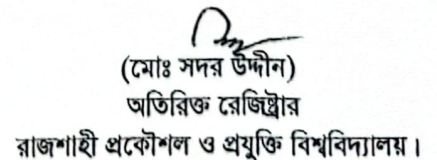 (মোঃ সদর উদ্দীন)
অতিরিক্ত রেজিষ্ট্রার
রাজশাহী প্রকৌশল ও প্রযুক্তি বিশ্ববিদ্যালয়।